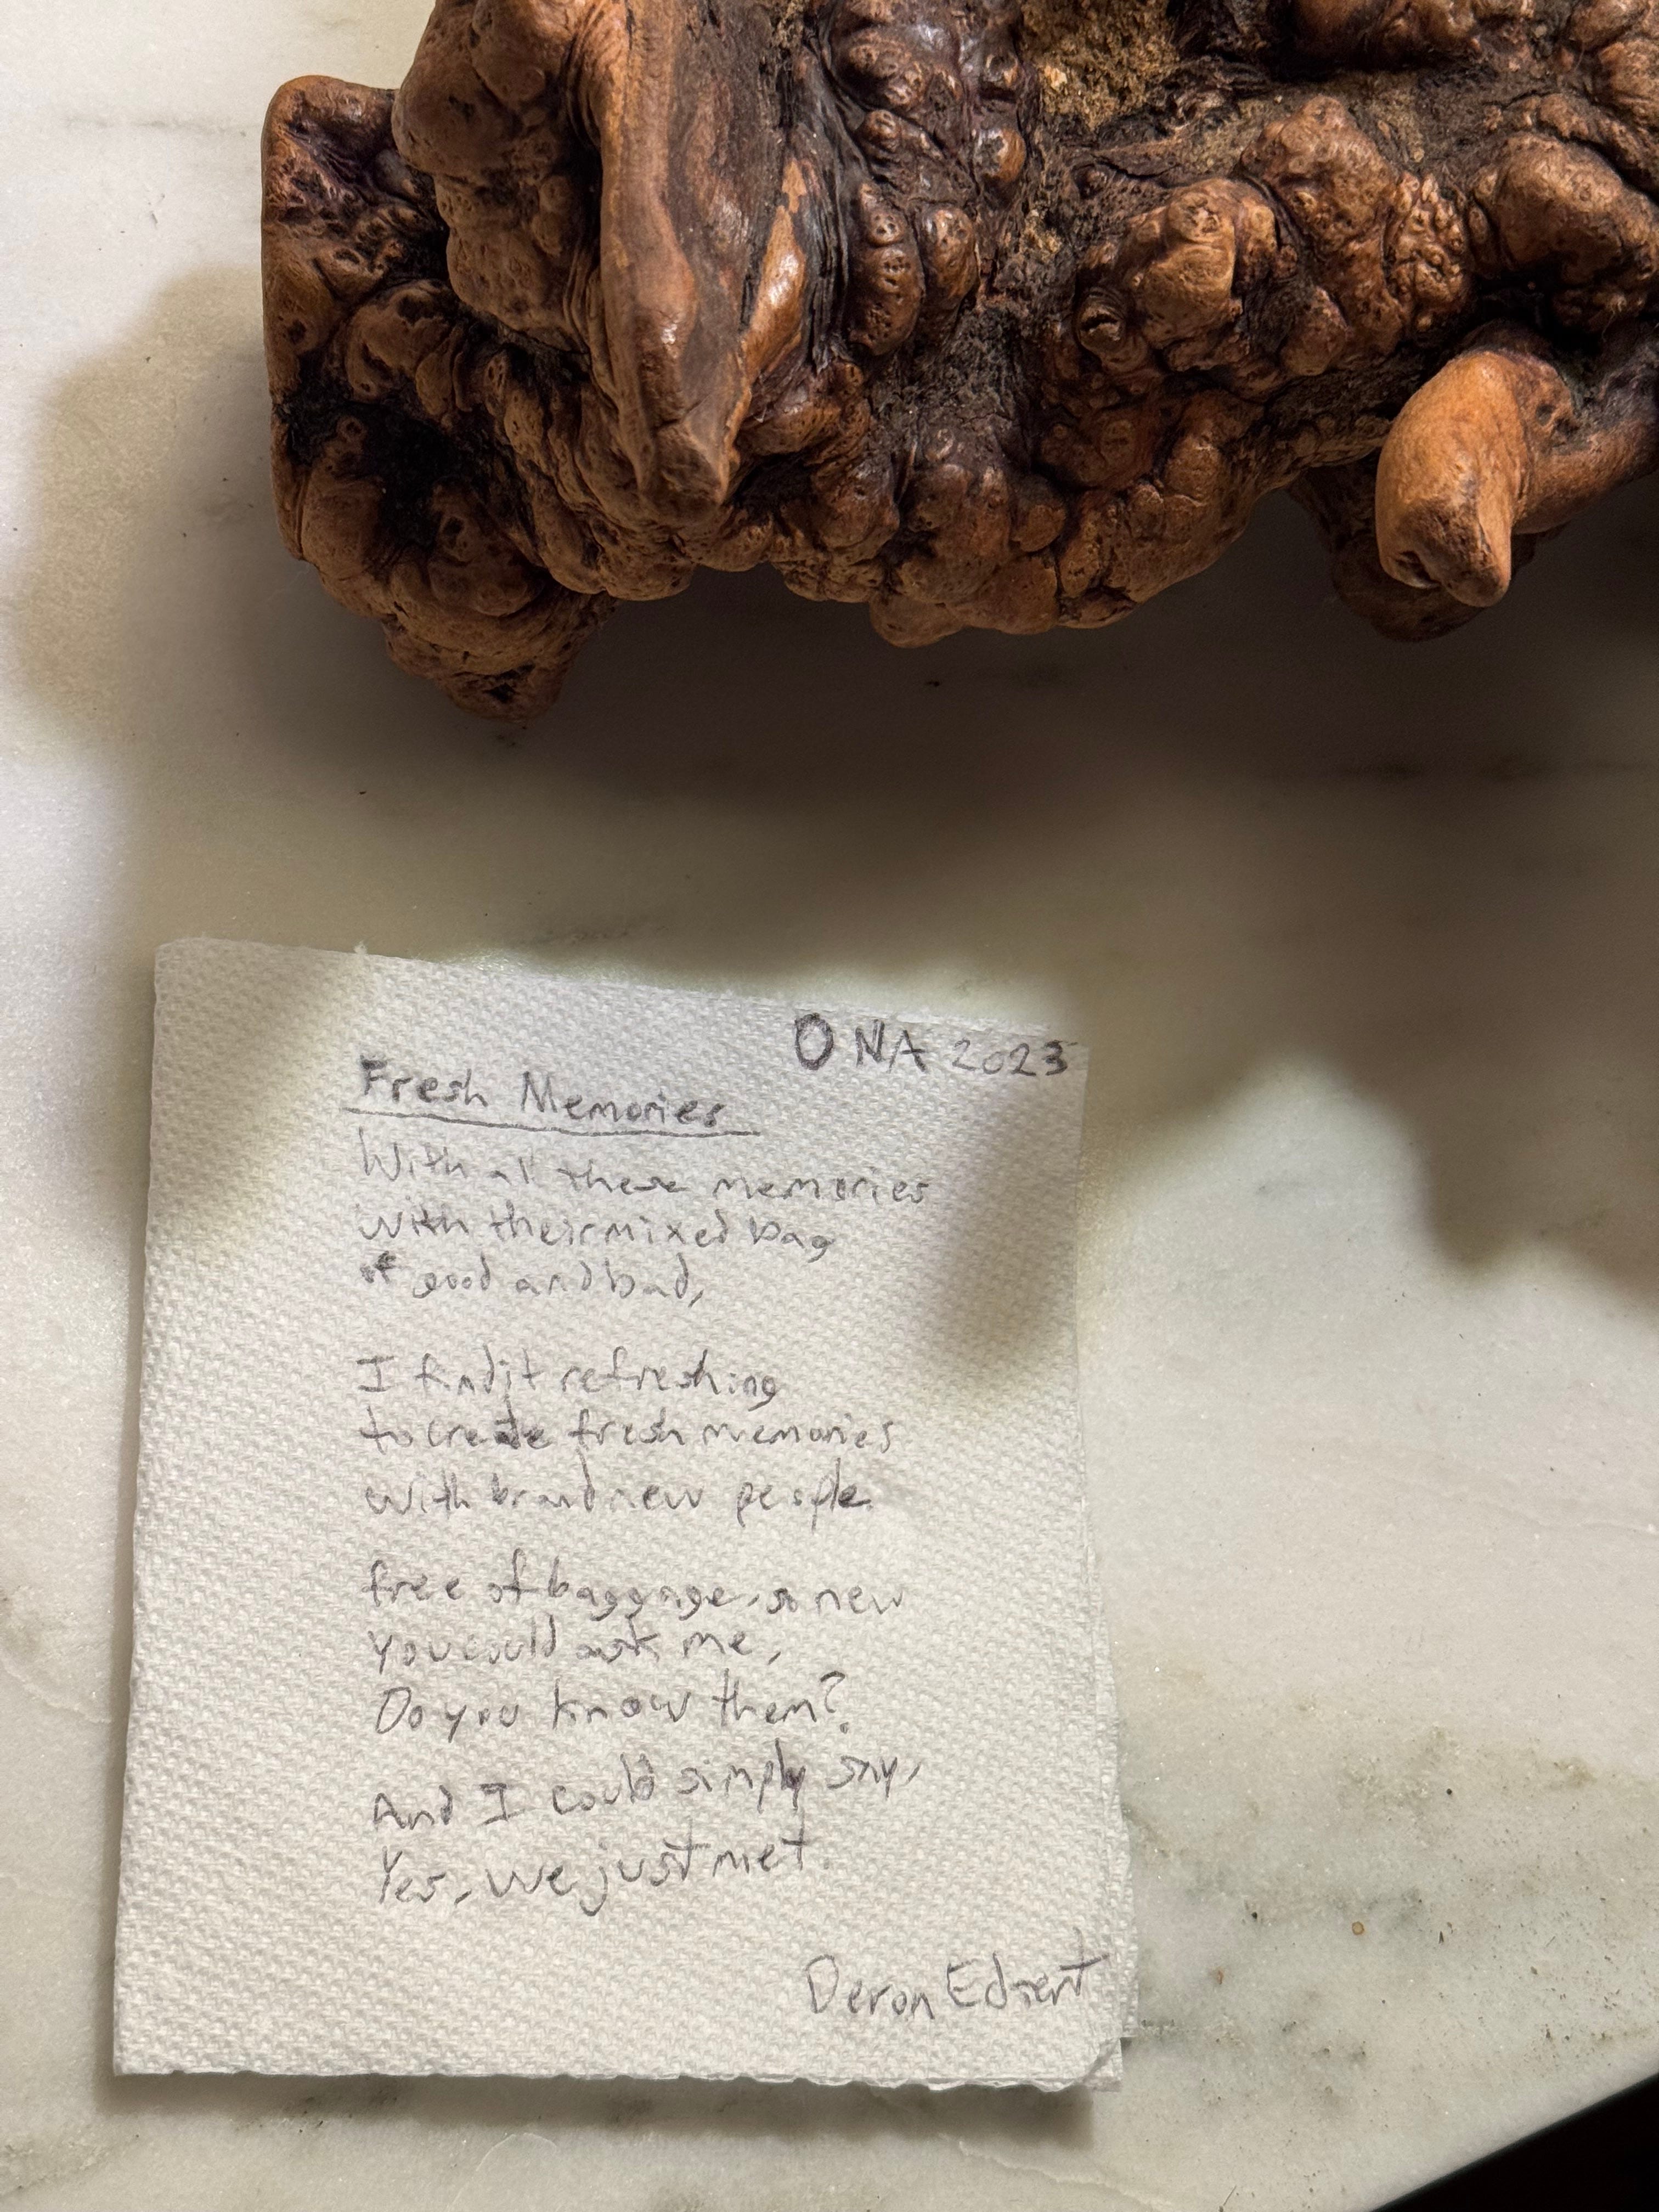 ONA 2023
Fresh Memories
With all these memories
with their mixed bag
of good and bad,
I find it refreshing
to create fresh memories
with brand new people.
free of baggage, so new
you could ask me,
Do you know them?
And I could simply say,
Yes, we just met.
Deron Edzert